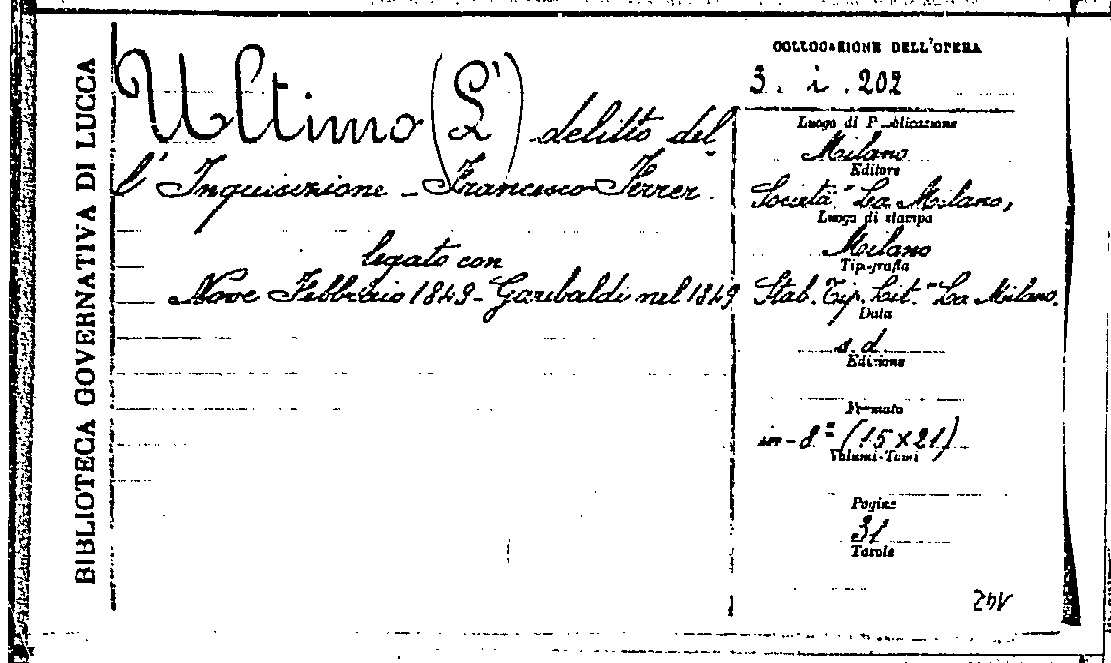 BIBLIOTECA GOVERNATIVA DI LUCCA
Ultimo (L') delitto del
l'Inquisizione - Francesco Ferrer.
legato con
Nove Febbraio 1849 - Garibaldi nel 1849
COLLOCAZIONE DELL'OPERA
3. i. 202
Luogo di Pubblicazione
Milano
Editore
Società "La Milano,
Luogo di stampa
Milano
Tipografia
Stab. Tip. Lit. "La Milano.
Data
s. d.
Edizione
Formato
in-8º (15x21)
Volumi-Tomi
Pagine
31
Tavole